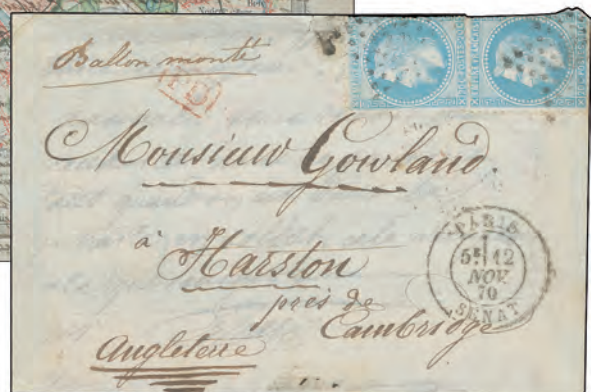 Ballon monté
PD
Monsieur Gowland.
à
Harston
près de
Cambridge
Angleterre
PARIS
5E 12
NOV.
70
SENAT